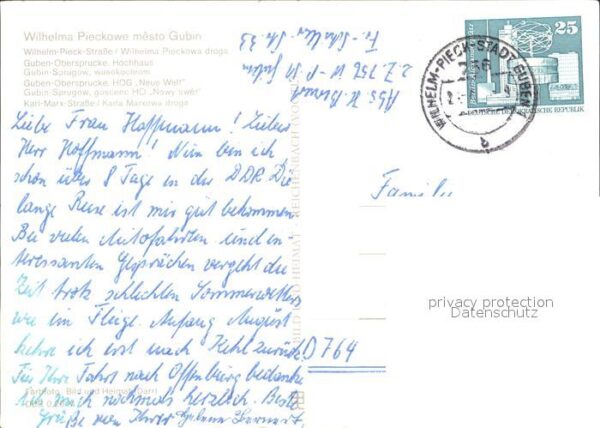 Wilhelma Pieckowe město Gubin
Wilhelm-Pieck-Straße / Wilhelma Pieckowa droga
Guben-Obersprucke, Hochhaus
Gubin-Sprugow, wusokodom
Guben-Obersprucke, HOG „Neue Welt"
Gubin-Sprugow, gosćenc HO „Nowy swět"
Karl-Marx-Straße / Karla Marxowa droga
Liebe Frau Hoffmann! Lieber
Herr Hoffmann! Nun bin ich
schon über 8 Tage in der DDR Die
lange Reise ist mir gut bekommen
Bei vielen Autofahrten und in-
teressanten Gesprächen vergeht die
Zeit trotz schlechten Sommerwetters
wie im Fluge. Anfang August
kehre ich erst nach Kehl zurück.
Für Ihre Fahrt nach Offenburg bedanke
ich mich nochmals herzlich. Beste
Grüße von Ihrer
Farbfoto: Bild und Heimat
Abs. H.
z. Z. 756 W. P. St Guben
Str 33
BILD UND HEIMAT REICHENBACH
25
DEUTSCHE DEMOKRATISCHE REPUBLIK
WILHELM-PIECK-STADT GUBEN
b
Familie
D 764
privacy protection
Datenschutz